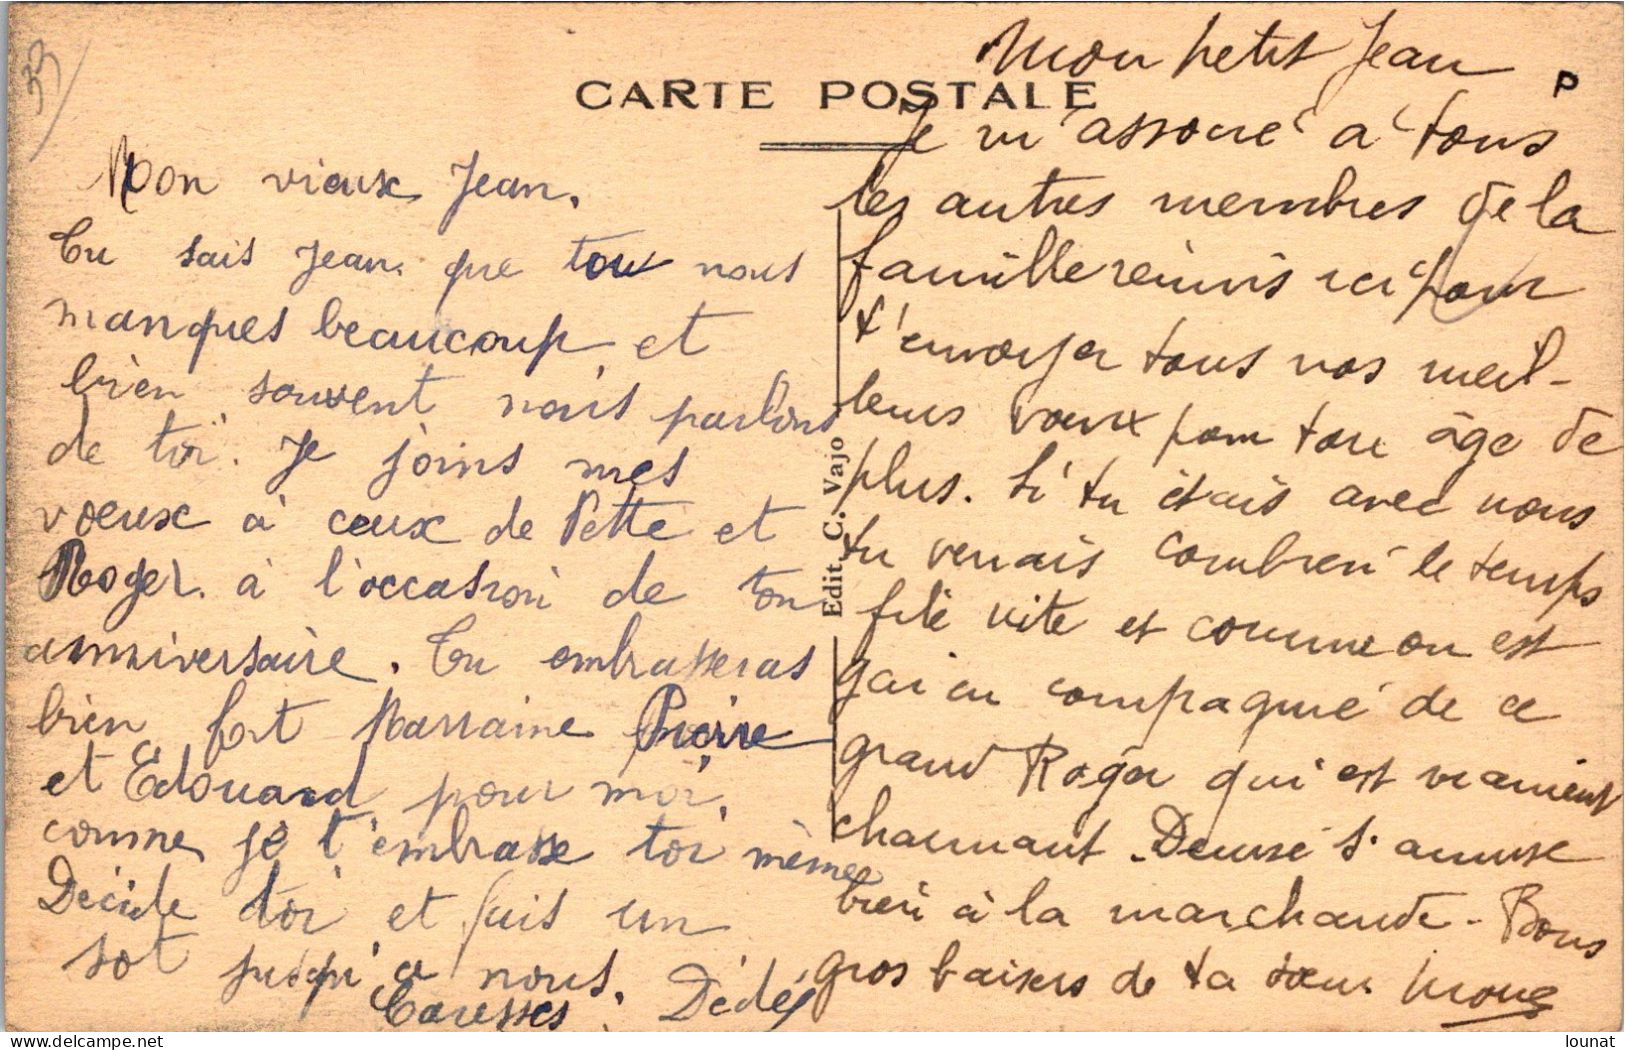 33
CARTE POSTALE
P
Mon vieux Jean.
Tu sais Jean que tou nous
manques beaucoup et
bien souvent nous parlons
de toi. Je joins mes
voeux à ceux de Pette et
Roger. à l'occasion de ton
anniversaire. Tu embrasseras
bien fort Marraine Pierre
et Edouard pour moi,
comme je t'embrasse toi même
Décide toi et fais un
sot jusqu'a nous.
Caresses. Dédé
Edit. C. Vajo
Mon petit Jean
Je m'associe à tous
les autres membres de la
famille réunis ici pour
t'envoyer tous nos meil-
leurs voeux pour ton âge de
plus. Si tu étais avec nous
tu verrais combien le temps
file vite et comme on est
gai en compagnie de ce
grand Roger qui est vraiment
charmant. Denise s'amuse
bien à la marchande. Bons
gros baisers de ta soeur
delcampe.net
lounat